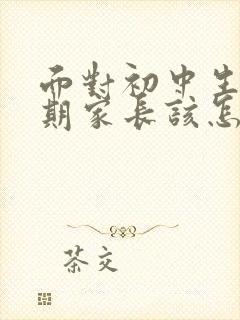 而對初中生
期家長該怎
茶文